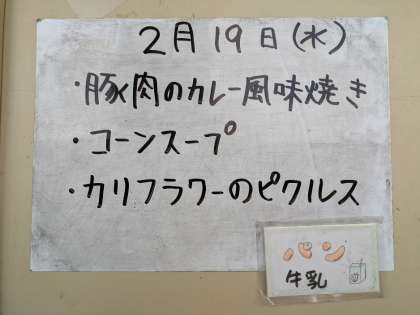 2月19日(水)
・豚肉のカレー風味焼き
・コーンスープ
・カリフラワーのピクルス
パン
牛乳